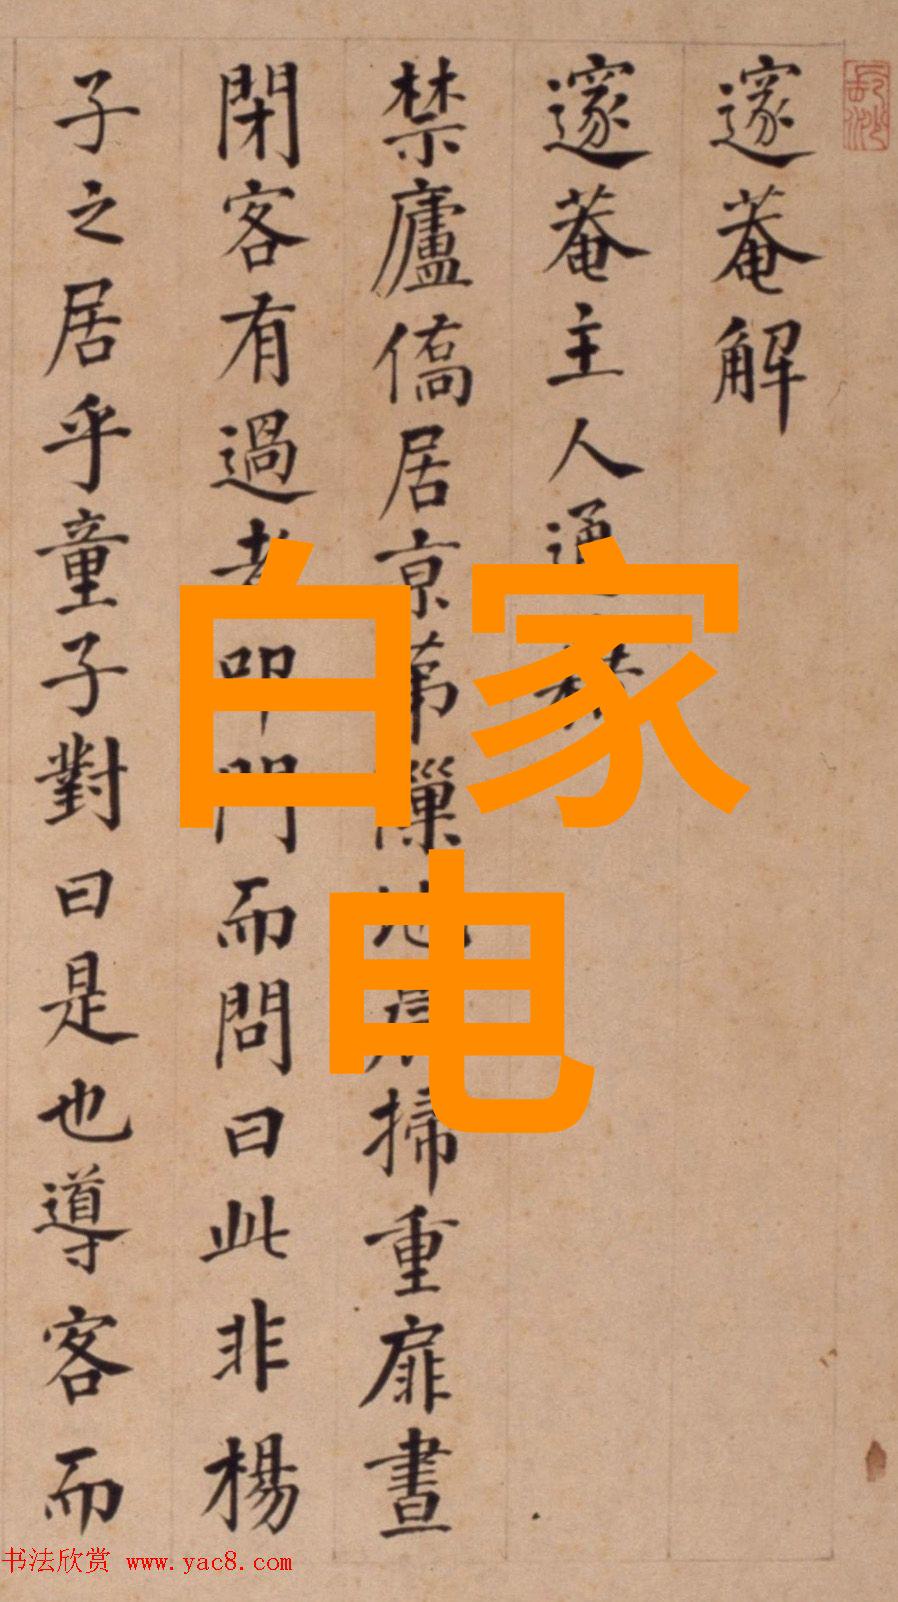 邃菴解
邃菴主人通籍
禁廬僑居京第
掃重扉晝
閉客有過者叩門而問曰此非楊
子之居乎童子對曰是也導客而
白家
电
书法欣赏 www.yac8.com